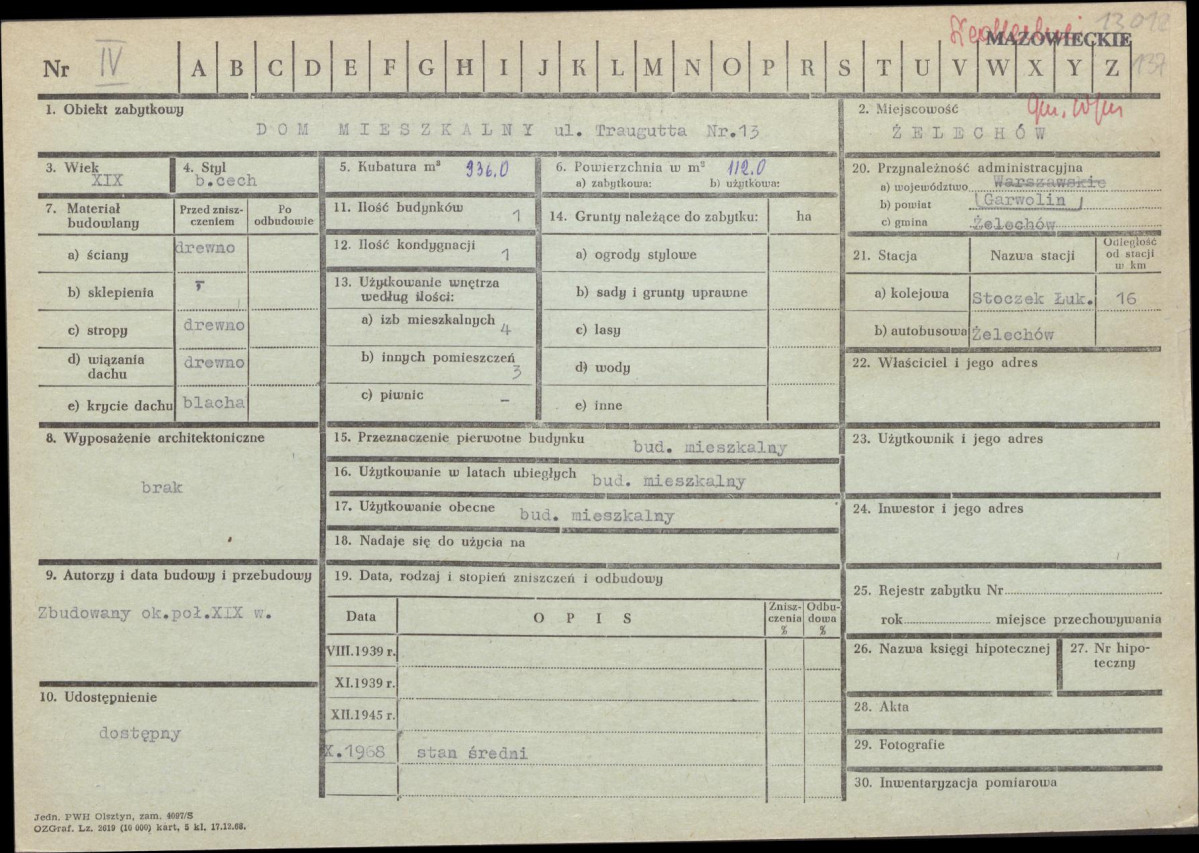 13012
MAZOWIECKIE
137
Nr IV A B C D E F G H I J K L M N O P R S T U V W X Y Z
1. Obiekt zabytkowy
DOM MIESZKALNY ul. Traugutta Nr.13
2. Miejscowość
ŻELECHÓW
3. Wiek
XIX
4. Styl
b.cech
5. Kubatura m³ 936.0
6. Powierzchnia w m² 112.0
a) zabytkowa: b) użytkowa:
7. Materiał budowlany
Przed zniszczeniem
Po odbudowie
a) ściany drewno
b) sklepienia
c) stropy drewno
d) wiązania dachu drewno
e) krycie dachu blacha
8. Wyposażenie architektoniczne
brak
9. Autorzy i data budowy i przebudowy
Zbudowany ok.poł.XIX w.
10. Udostępnienie
dostępny
11. Ilość budynków 1
12. Ilość kondygnacji 1
13. Użytkowanie wnętrza
według ilości:
a) izb mieszkalnych 4
b) innych pomieszczeń 3
c) piwnic –
14. Grunty należące do zabytku: ha
a) ogrody stylowe
b) sady i grunty uprawne
c) lasy
d) wody
e) inne
15. Przeznaczenie pierwotne budynku bud. mieszkalny
16. Użytkowanie w latach ubiegłych bud. mieszkalny
17. Użytkowanie obecne bud. mieszkalny
18. Nadaje się do użycia na
19. Data, rodzaj i stopień zniszczeń i odbudowy
Data OPIS Zniszczenia % Odbudowa %
VIII.1939 r.
XI.1939 r.
XII.1945 r.
X.1968 stan średni
20. Przynależność administracyjna
a) województwo Warszawskie
b) powiat Garwolin
c) gmina Żelechów
21. Stacja Nazwa stacji Odległość od stacji w km
a) kolejowa Stoczek Łuk. 16
b) autobusowa Żelechów
22. Właściciel i jego adres
23. Użytkownik i jego adres
24. Inwestor i jego adres
25. Rejestr zabytku Nr
rok miejsce przechowywania
26. Nazwa księgi hipotecznej
27. Nr hipoteczny
28. Akta
29. Fotografie
30. Inwentaryzacja pomiarowa
Jedn. PWH Olsztyn, zam. 4097/S
OZGraf. Lz. 2619 (10 000) kart, 5 kl. 17.12.68.